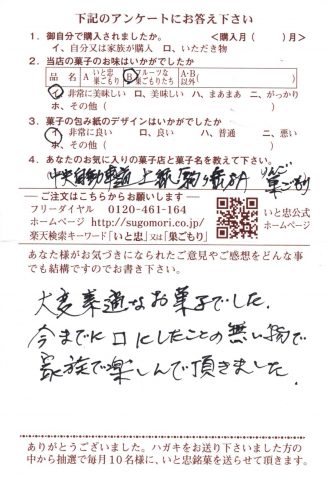 下記のアンケートにお答え下さい
1. 御自分で購入されましたか。 <購入月( )月>
イ、自分又は家族が購入 ロ、いただき物
2. 当店の菓子のお味はいかがでしたか
品名 A いと忠巣ごもり B フルーツな巣ごもりたち A・B以外( )
イ、非常に美味しい ロ、美味しい ハ、まあまあ ニ、がっかり
ホ、その他( )
3. 菓子の包み紙のデザインはいかがでしたか
イ、非常に良い ロ、良い ハ、普通 ニ、悪い
ホ、その他( )
4. あなたのお気に入りの菓子店と菓子名を教えて下さい。
中央自動車道 上り 駒ヶ岳SA りんご
巣ごもり
ご注文はこちらからお願いします
フリーダイヤル 0120-461-164
ホームページ http://sugomori.co.jp/
楽天検索キーワード「いと忠」又は「巣ごもり」
いと忠公式
ホームページ
あなた様がお気づきになられたご意見やご感想をどんな事
でも結構ですのでお書き下さい。
大変素適なお菓子でした.
今までに口にしたことの無い物で
家族で楽しんで頂きました.
ありがとうございました。ハガキをお送り下さいました方の
中から抽選で毎月10名様に、いと忠銘菓を送らせて頂きます。